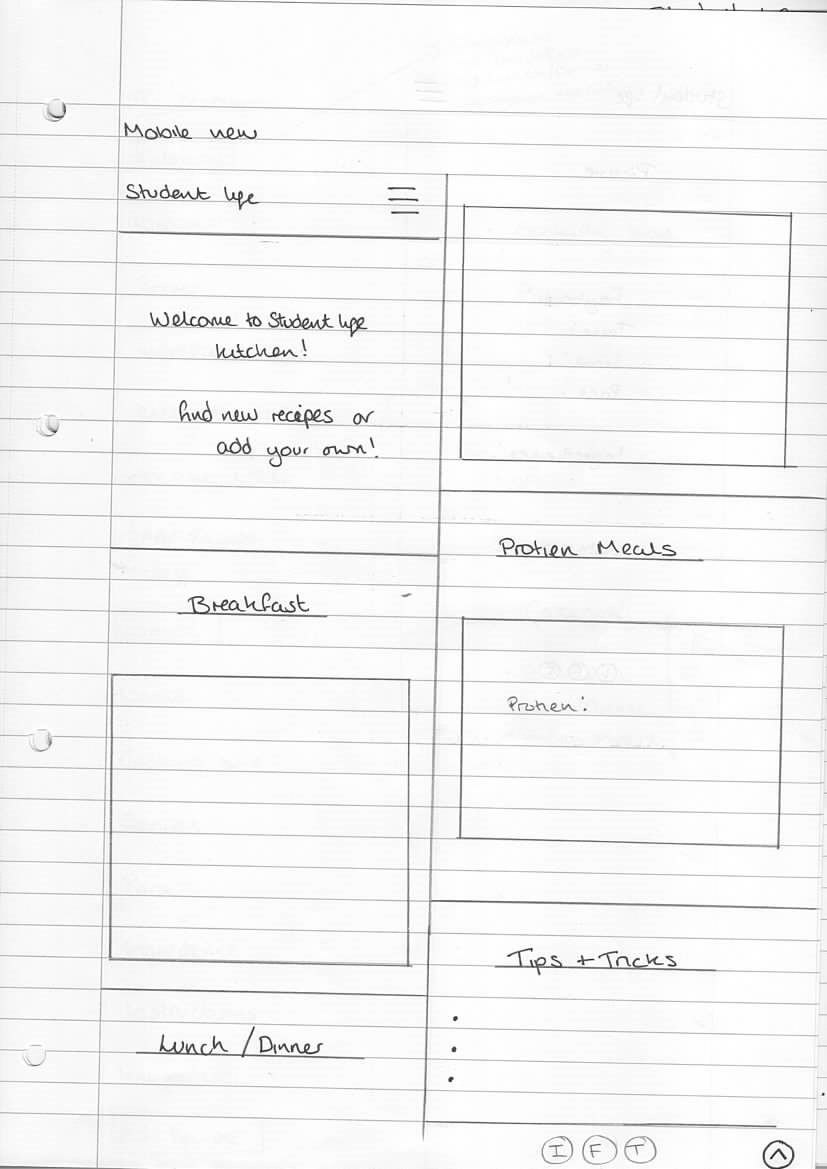 Mobile view
Student life
Welcome to Student life
kitchen!
find new recipes or
add your own!
Breakfast
Lunch / Dinner
Protien Meals
Protien:
Tips + Tricks
I F T